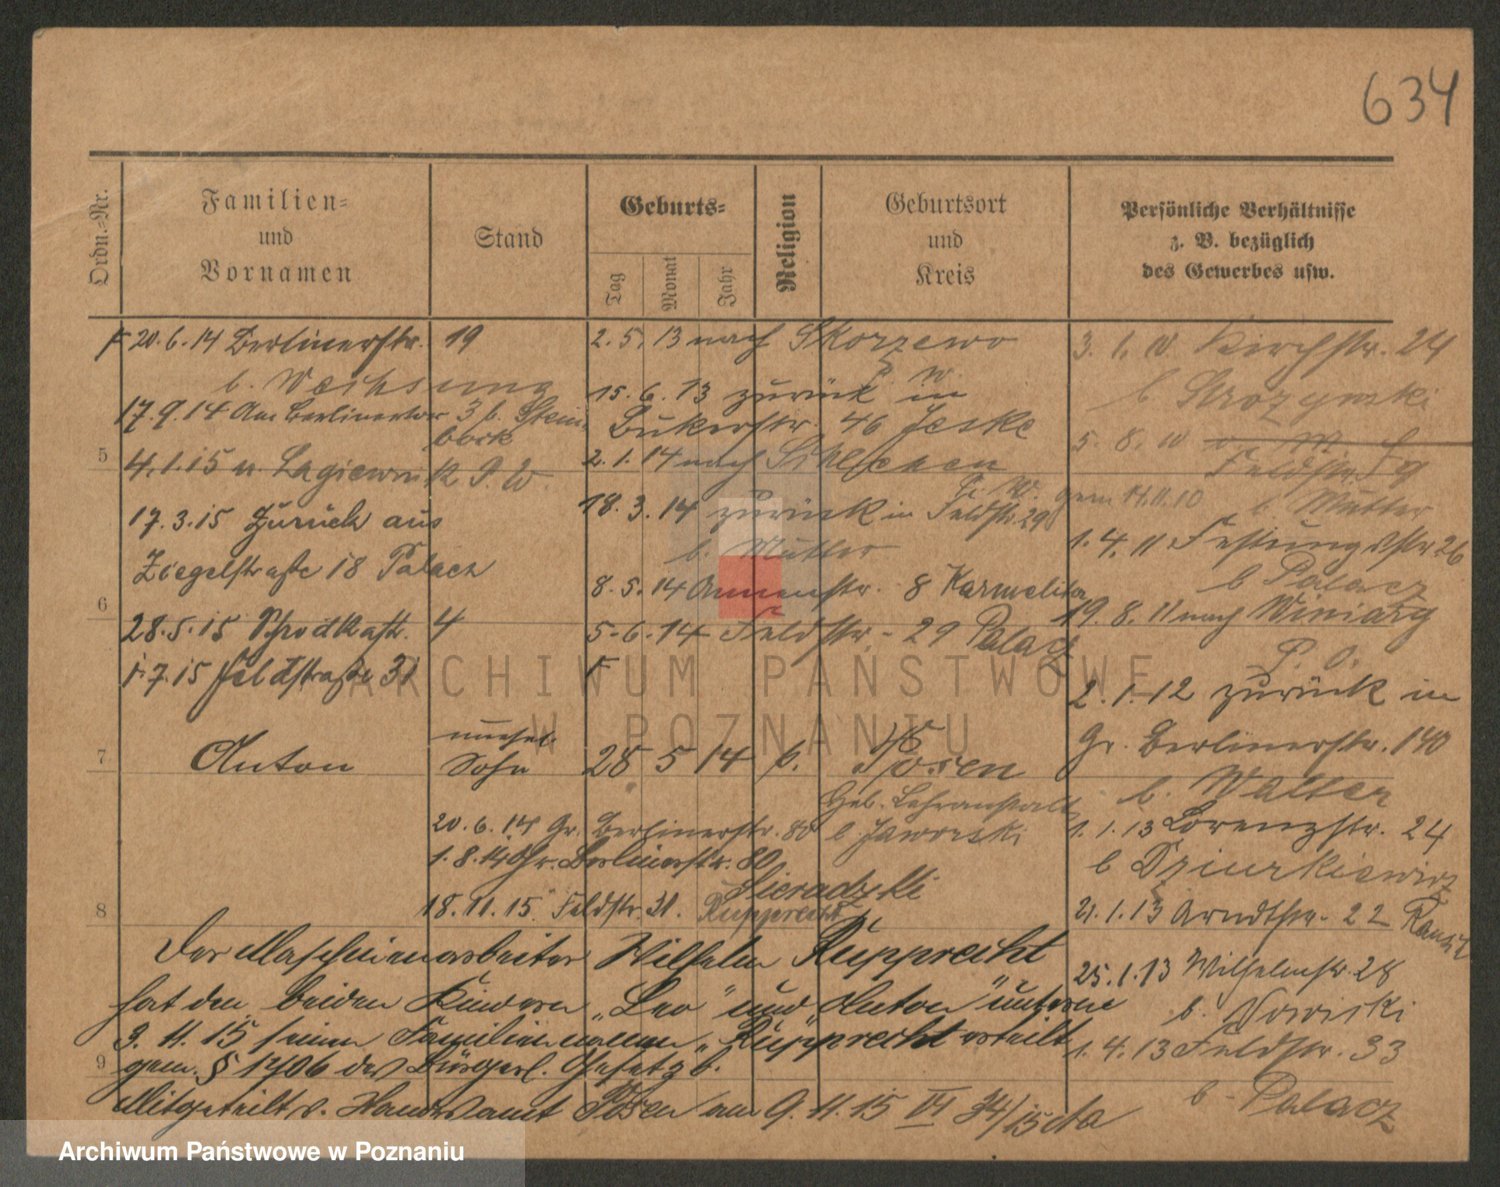 634
Ordn.-Nr.
Familien-
und
Vornamen
Stand
Geburts-
Tag
Monat
Jahr
Religion
Geburtsort
und
Kreis
Persönliche Verhältnisse
z. B. bezüglich
des Gewerbes usw.
20.6.14 Berlinerstr. 19
b. Wechsung
17.9.14 Am Berlinertor 3 b. Stein-
bock
5
4.1.15 n. Lagiewnik P. W.
17.3.15 Zurück aus
Ziegelstraße 18 Palacz
6
28.5.15 Schrodkastr. 4
1.7.15 Feldstraße 31
2.5.13 nach Skorzewo
P. W.
15.6.13 zurück in
Bukerstr. 46 Jeske
2.1.14 nach
P. W.
18.3.14 zurück in Feldstr. 29
b. Mutter
8.5.14 Annenstr. 8 Karmelita
5.6.14 Feldstr. 29 Palacz
7
Anton
unehel.
Sohn
28 5 14 k.
Posen
Heb. Lehranstalt
20.6.14 Gr. Berlinerstr. 80 b Jaworski
1.8.14 Gr. Berlinerstr. 80
Sieradzki
8
18.11.15 Feldstr. 31. Rupprecht
3. 1. 10 Kirchstr. 24
b Strozynski
5. 8. 10
Feldstr. 29
b. Mutter
1. 4. 11 Festungsstr 26
b Palacz
19. 8. 11 nach Winiary
P. O.
2. 1. 12 zurück in
Gr. Berlinerstr. 140
b. Walter
1. 1. 13 Lorenzstr. 24
b Dziurkiewicz
21. 1. 13 Arndtstr. 22
25. 1. 13 Wilhelmstr 28
b. Nowicki
1. 4. 13 Feldstr. 33
b. Palacz
Der Maschinenarbeiter Wilhelm Rupprecht
hat den beiden Kindern „Leo" und „Anton" unterm
3. 11. 15 seinen Familiennamen „Rupprecht" erteilt
9
gem. § 1706 des Bürgerl. Gesetzb.
Mitgeteilt v. Standesamt Posen am 9. 11. 15 VI 34/15
ARCHIWUM PAŃSTWOWE
W POZNANIU
Archiwum Państwowe w Poznaniu